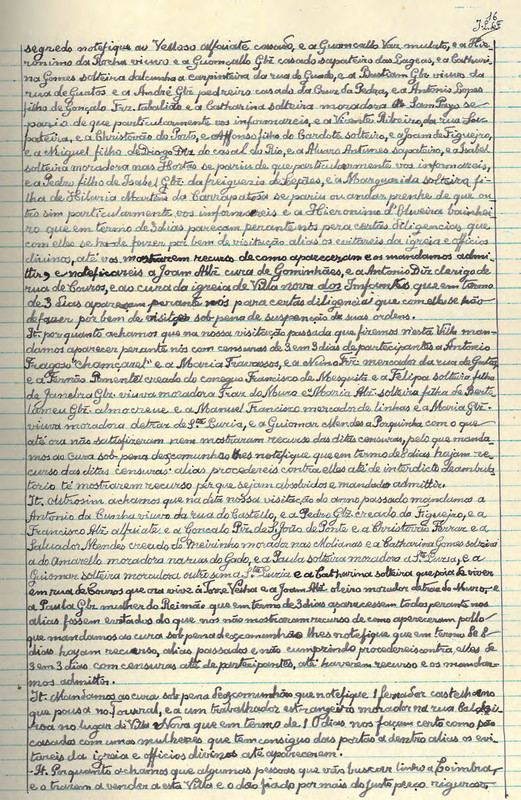 16
segredo notefique ao Velloso alfaiate casado, e a Guoncallo Vaz mulato, e a Hie-
ronimo da Rocha viuvo e a Guomçallo Glz casado sapateiro das Lageas, e a Catheri-
na Gomes solteira dalcunha a carpinteira da rua do Guado, e a Bastiam Glz viuvo da
rua de Guatos e a André Glz pedreiro casado da Cruz da Pedra, e a Antonio Lopes
filho de Gonçalo Frz. tabalião e a Catharina solteira moradora a Sam Payo se
pariu de que particularmente vos informareis, e a Vicente Ribeiro, da rua Sa-
pateira, e a Christovão do Porto, e Affonso filho do Cardote solteiro, e a Joam de Figueiro,
e a Miguel filho de Diogo Diz do casal do Rio, e a Alvaro Antunes sapateiro, e a Isabel
solteira moradora nas Hortas se pariu de que particularmente vos informareis,
e a Pedro filho de Isabel Glz da freiguesia de Cepães, e a Marguarida solteira fi-
lha de Hilaria Martins do Carrapatoso se pariu ou andar prenhe de que ou-
tro sim particularmente vos informareis e a Hieronimo d'Oliveira bainhei-
ro que em termo de 3 dias pareçam perante nós pera certas diligencias, que
com elle se hão de fazer por bem de visitação alias os evitareis da igreja e officios
divinos, até vos mostrarem recurso de como apareceram e os mandamos admi-
ttir, e noteficareis a Joam Alz cura de Gominhães, e a Antonio Diz clerigo da
rua de Couros, e ao cura da igreia de Villa nova dos Infantes que em termo
de 3 dias apareçam perante nós para certas diligencias que com elles se hão
de fazer por bem de visitação sob pena de suspenção de suas ordens.
It. por quanto achamos que na nossa visitação passada que fizemos nesta Villa man-
damos aparecer perante nós com censuras de 3 em 3 dias de participantes a Antonio
Fragoso "Chamçarel" e a Maria Travassos, e a Nuno Frz. mercador da rua de Guatos,
e a Fernão Pimentel creado do conego Francisco de Mesquita e a Felipa solteira filha
de Janeira Glz. viuva moradora Traz do Muro e Maria Alz. solteira filha de Berto-
lameu Glz. almocreve e a Manuel Francisco mercador de linhas e a Maria Glz.
viuva moradora detraz de Sta Luzia, e a Guiomar Mendes a Porquinha com o que
até ora não satisfizeram nem mostraram recurso das ditas censuras, pelo que manda-
mos ao Cura sob pena descomunhão lhes notefique que em termo de 8 dias hajam re-
curso das ditas censuras: alias procedereis contra elles até de interdicto deambula-
torio té mostrarem recurso per que sejam absolvidos e mandado admittir.
It. Outrosim achamos que na dita nossa visitação do anno passado mandamos a
Antonio da Cunha viuvo da rua do Castello, e a Pedro Glz creado do Figueiro, e a
Francisco Alz alfaiate e a Goncalo Piz. de S. João de Ponte e a Christovão Ferraz e a
Salvador Mendes creado do Meirinho morador nas Molianas e a Catharina Gomes solteira
a do Amarello moradora na rua do Gado, e a Paula solteira moradora a Sta Luzia, e a
Guiomar solteira moradora outrosim a Sta Luzia e a Catharina solteira que soia de viver
em rua de Couros que ora vive á Torre Velha e a Joam Alz. oleiro morador detraz do Muro, e
a Paula Glz mulher do Reimão que em termo de 3 dias aparecessem todos perante nós
alias fossem evitados do que nos não mostraram recurso de como apareceram pello
que mandamos ao cura sob pena descomunhão lhes notefique que em termo de 8
dias hajam recurso, alias passados e não cumprindo procedereis contra elles de
3 em 3 dias com censuras até de partecipantes, até haverem recurso e os mandar-
mos admittir.
It. Mandamos ao cura sob pena descomunhão que notefique 1 ferrador castelhano
que pousa no Toural, e a um trabalhador estrangeiro morador na rua Caldei-
roa no lugar de Villa Nova que em termo de 10 dias, nos façam certo como são
casados com umas mulheres que tem consiguo das portas a dentro alias os evi-
tareis da igreia e officios divinos até aparecerem.
- It. Porquanto achamos que algumas pessoas que vão buscar linho a Coimbra,
e o trazem a vender a esta Villa e o dão fiado por mais do justo preço rigoroso,